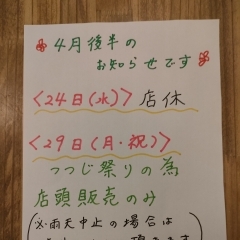 4月後半の
お知らせです
<24日(水)> 店休
<29日(月・祝)>
つつじ祭りの為
店頭販売のみ
(※雨天中止の場合は